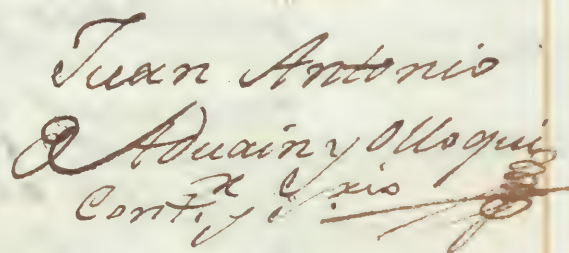 Juan Antonio
de Aduain y Olloqui
Cont.